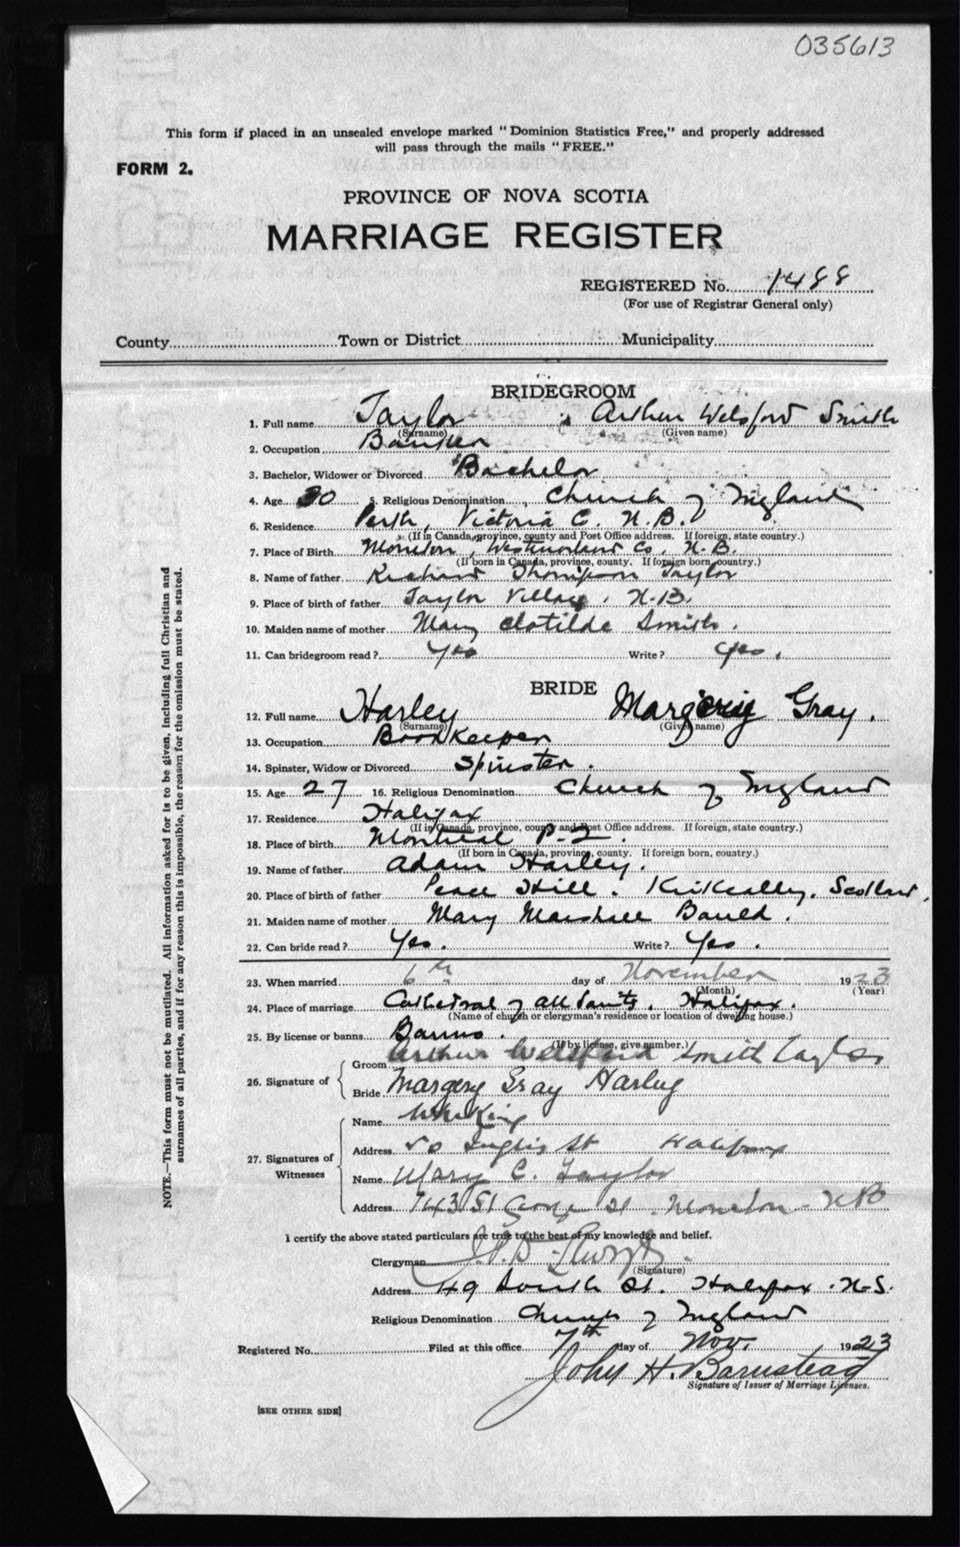 035613
This form if placed in an unsealed envelope marked "Dominion Statistics Free," and properly addressed
will pass through the mails "FREE."
FORM 2.
PROVINCE OF NOVA SCOTIA
MARRIAGE REGISTER
REGISTERED No. 1488
(For use of Registrar General only)
County Town or District Municipality
BRIDEGROOM
1. Full name Taylor, Arthur Welsford Smith
(Surname) (Given name)
2. Occupation Banker
3. Bachelor, Widower or Divorced Bachelor
4. Age 30 5. Religious Denomination Church of England
6. Residence Perth, Victoria C. N.B.
(If in Canada, province, county and Post Office address. If foreign, state country.)
7. Place of Birth Moncton, Westmorland Co. N.B.
(If born in Canada, province, county. If foreign born, country.)
8. Name of father Richard Thompson Taylor
9. Place of birth of father Taylor Village, N.B.
10. Maiden name of mother Mary Clotilde Smith.
11. Can bridegroom read? Yes Write? Yes.
BRIDE
12. Full name Harley Margerie Gray.
(Surname) (Given name)
13. Occupation BookKeeper
14. Spinster, Widow or Divorced Spinster.
15. Age 27 16. Religious Denomination Church of England
17. Residence Halifax
(If in Canada, province, county and Post Office address. If foreign, state country.)
18. Place of birth Montreal P.Q.
(If born in Canada, province, county. If foreign born, country.)
19. Name of father Adam Harley.
20. Place of birth of father Peace Hill. Scotland,
21. Maiden name of mother Mary Marshall Bauld.
22. Can bride read? Yes. Write? Yes.
23. When married 6th day of November 1923
(Month) (Year)
24. Place of marriage Cathedral of All Saints. Halifax.
(Name of church or clergyman's residence or location of dwelling house.)
25. By license or banns Banns.
(If by license, give number.)
26. Signature of
Groom Arthur Welsford Smith Taylor
Bride Margery Gray Harley
27. Signatures of Witnesses
Name King
Address 50 Inglis St Halifax
Name Mary C. Taylor
Address 743 St George St. Moncton. NB
I certify the above stated particulars are true to the best of my knowledge and belief.
Clergyman
(Signature)
Address 49 South St. Halifax. N.S.
Religious Denomination Church of England
Registered No. Filed at this office 7th day of Nov. 1923
John H. Barnstead
Signature of Issuer of Marriage Licenses.
[SEE OTHER SIDE]
NOTE.—This form must not be mutilated. All information asked for is to be given, including full Christian and
surnames of all parties, and if for any reason this is impossible, the reason for the omission must be stated.